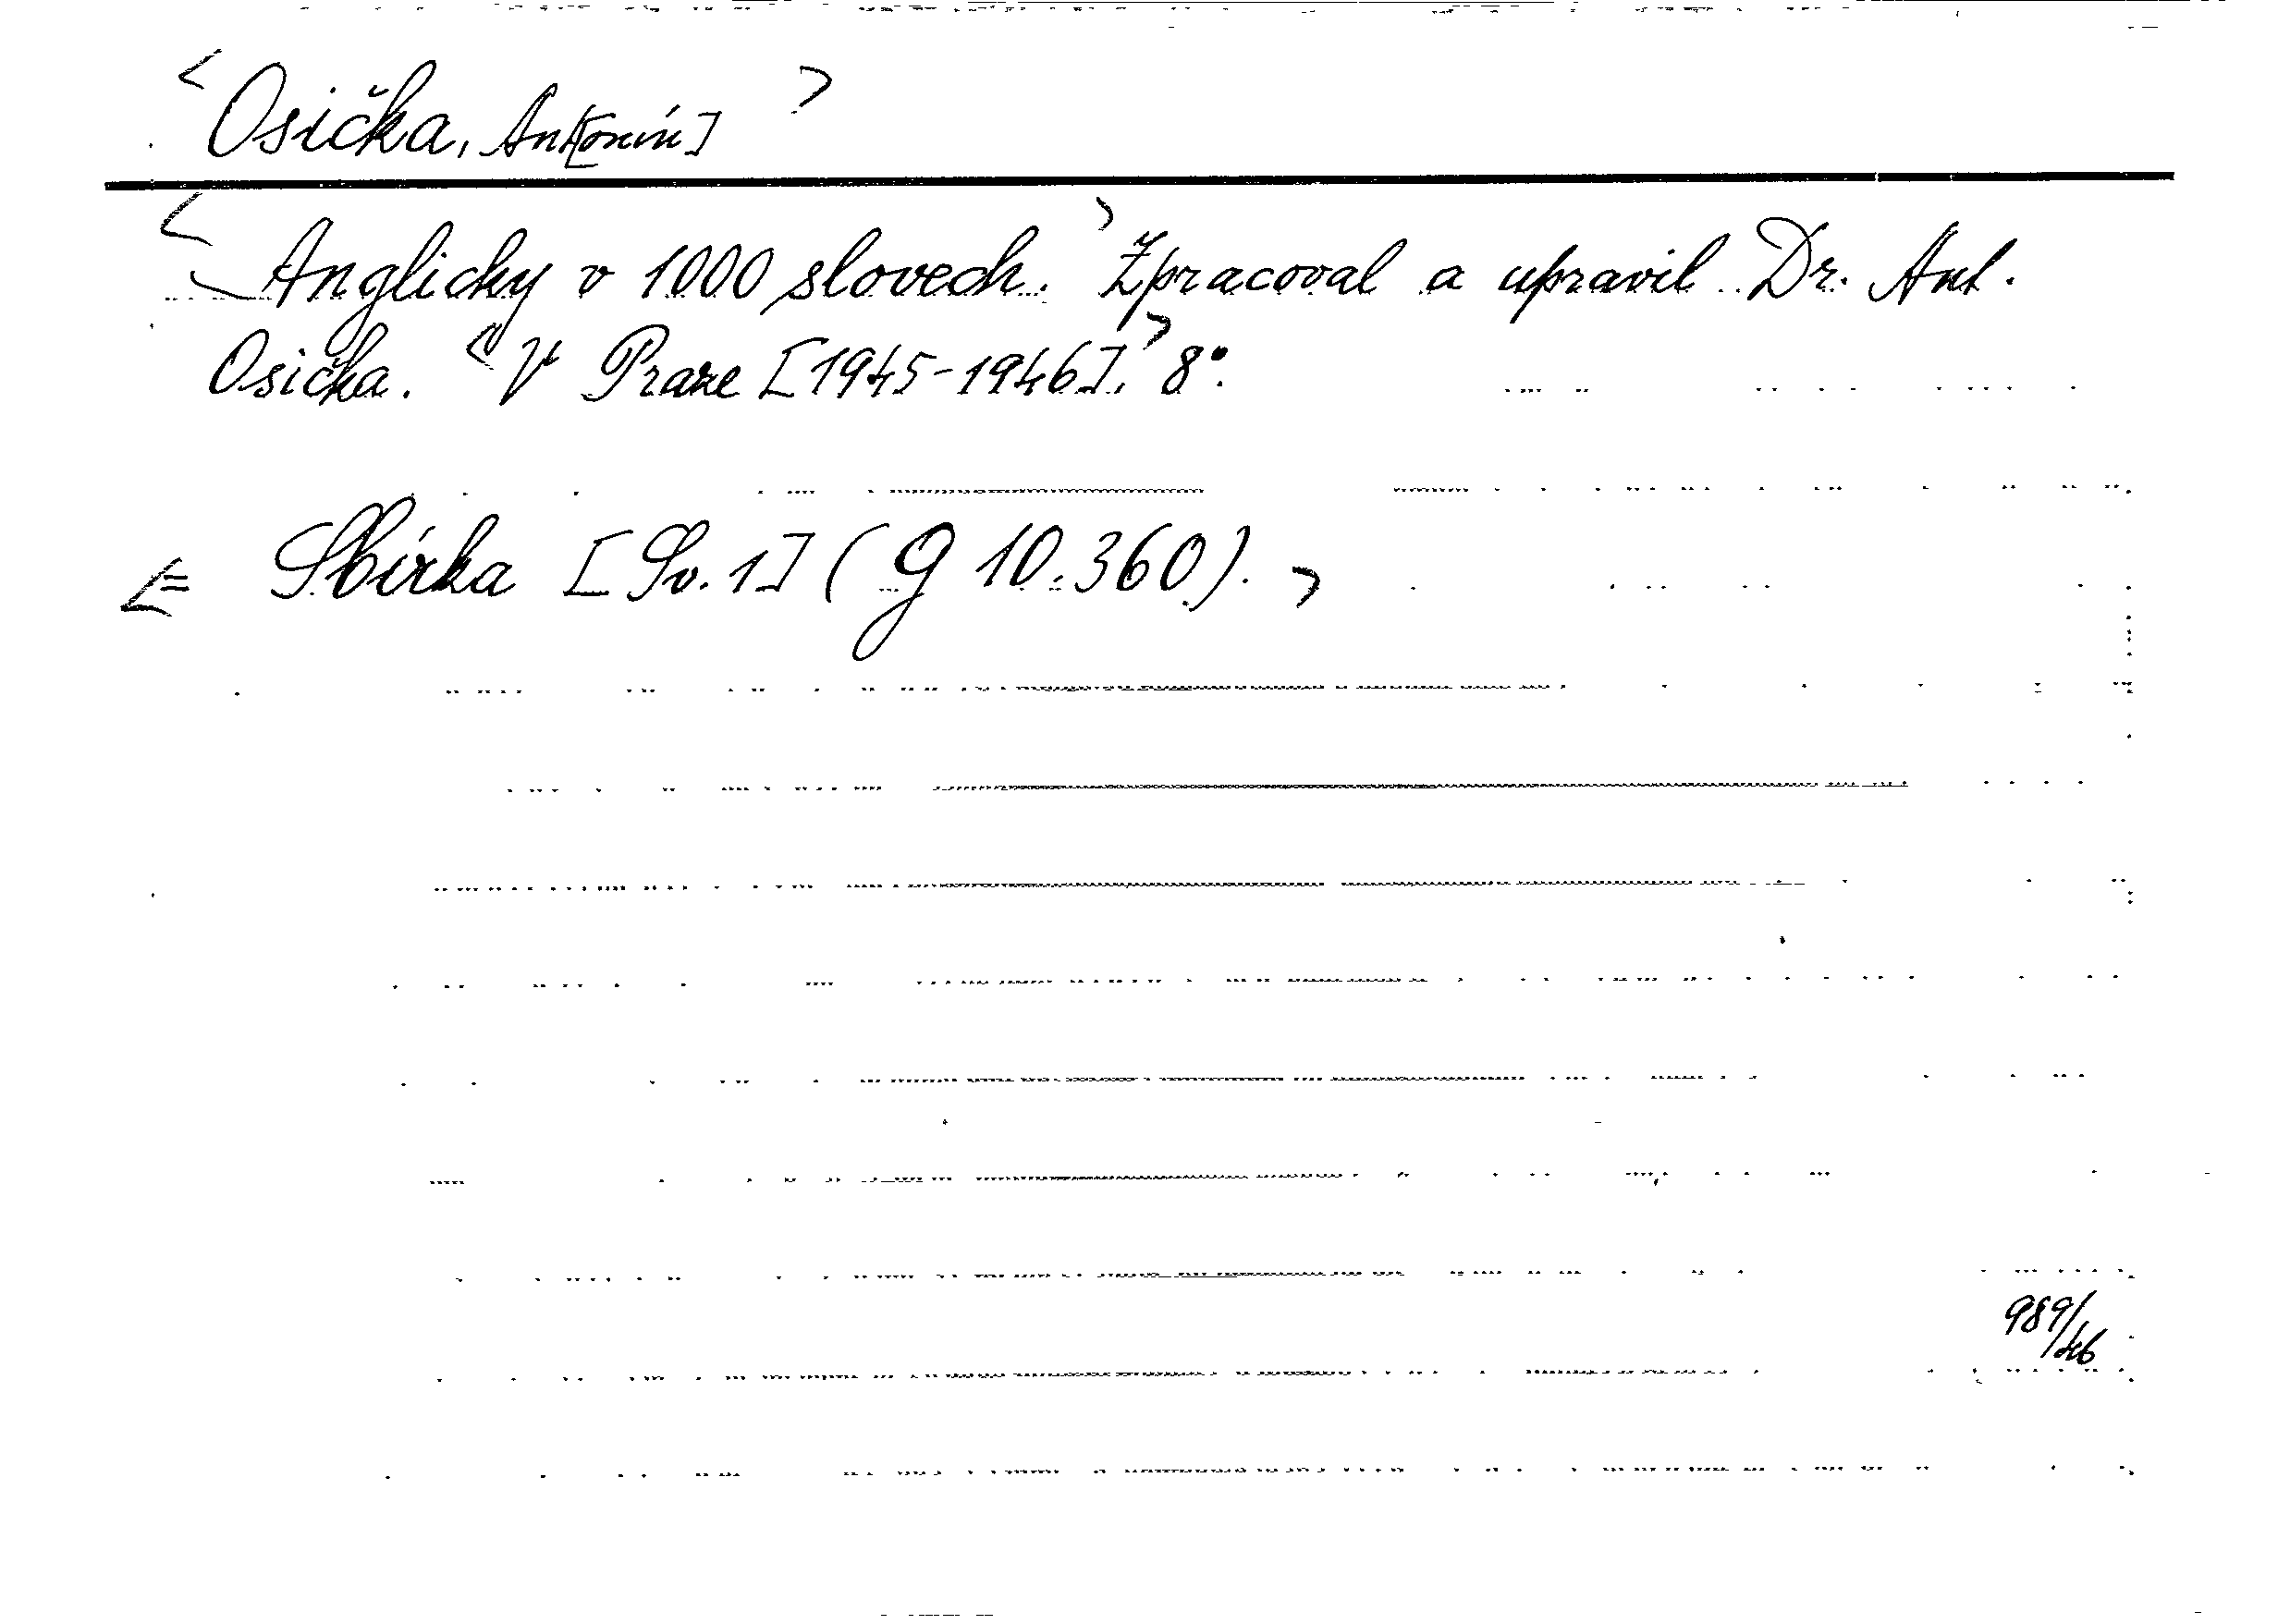 <Osička, Ant[onín]>
<Anglicky v 1000 slovech.> Zpracoval a upravil Dr. Ant.
Osička. <V Praze [1945-1946].> 8°.
<= Sbírka [Sv. 1] (g 10.360).>
989/46